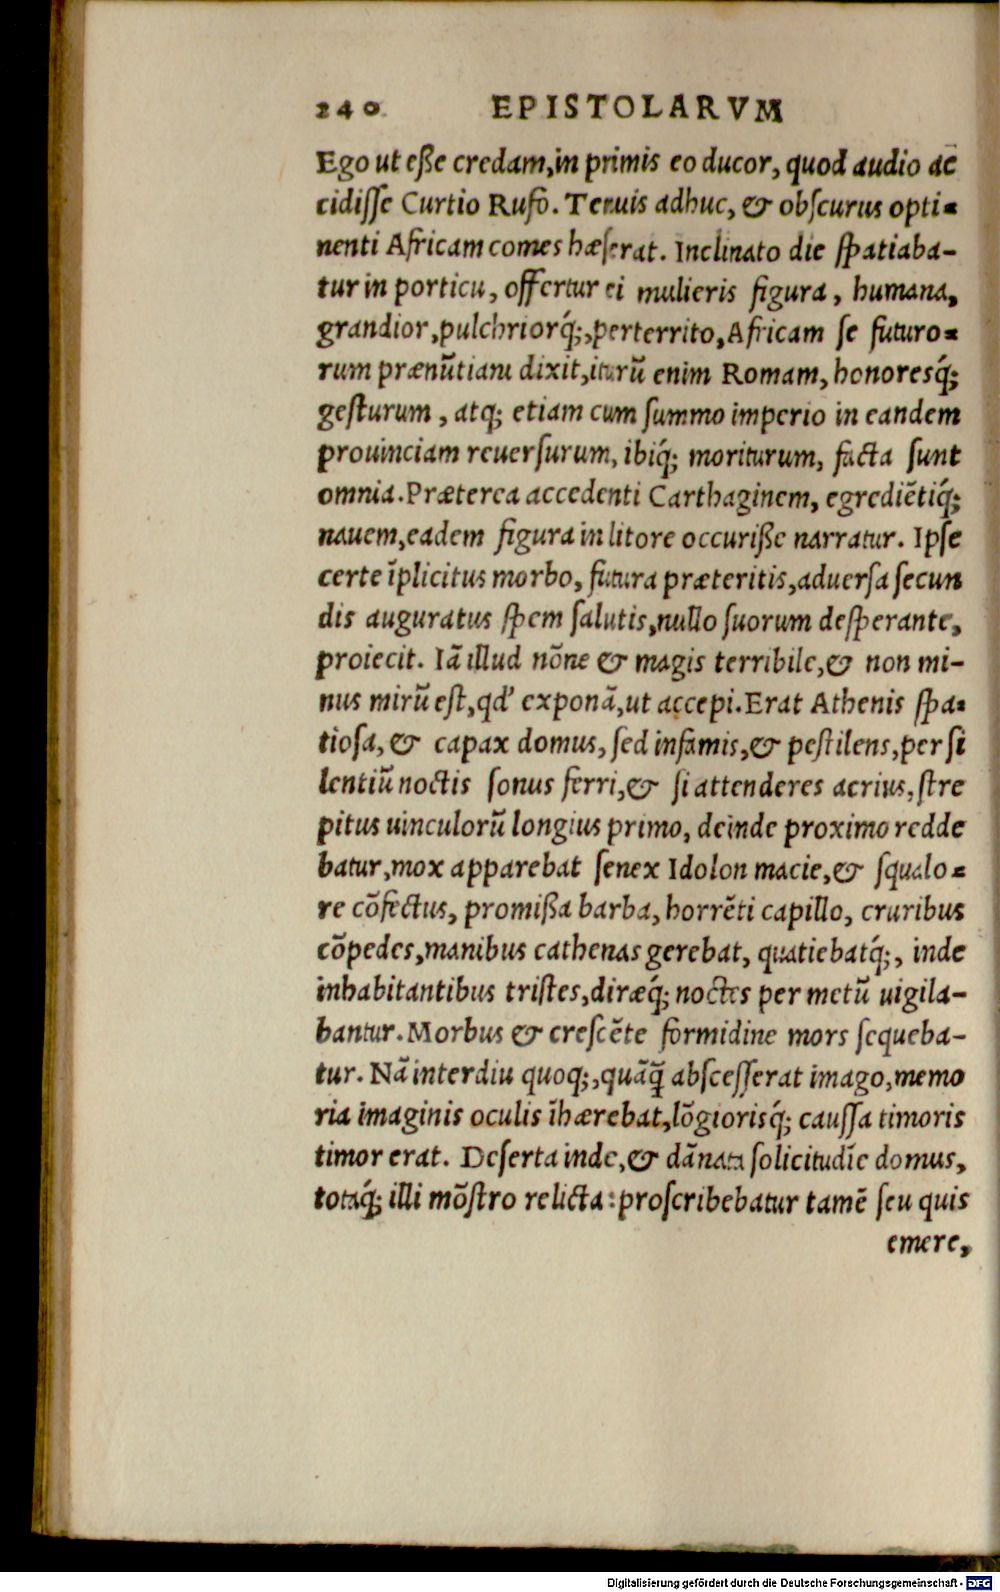 240 EPISTOLARVM
Ego ut eße credam, in primis eo ducor, quod audio ac̄
cidiſſe Curtio Rufo. Tenuis adhuc, & obſcurus opti-
nenti Africam comes hæſerat. Inclinato die ſpatiaba-
tur in porticu, offertur ei mulieris figura, humana,
grandior, pulchriorq́;, perterrito, Africam ſe futuro-
rum prænūtiam dixit, iturū enim Romam, honoresq́;
geſturum, atq; etiam cum ſummo imperio in eandem
prouinciam reuerſurum, ibiq́; moriturum, facta ſunt
omnia. Præterea accedenti Carthaginem, egrediētiq́;
nauem, eadem figura in litore occuriße narratur. Ipſe
certe īplicitus morbo, futura præteritis, aduerſa ſecun
dis auguratus ſpem ſalutis, nullo ſuorum deſperante,
proiecit. Iā illud nōne & magis terribile, & non mi-
nus mirū eſt, qd' exponā, ut accepi. Erat Athenis ſpa-
tioſa, & capax domus, ſed infamis, & peſtilens, per ſi
lentiū noctis ſonus ferri, & ſi attenderes acrius, ſtre
pitus uinculorū longius primo, deinde proximo redde
batur, mox apparebat ſenex Idolon macie, & ſqualo-
re cōfectus, promißa barba, horrēti capillo, cruribus
cōpedes, manibus cathenas gerebat, quatiebatq́;, inde
inhabitantibus triſtes, diræq́; noctes per metū uigila-
bantur. Morbus & creſcēte formidine mors ſequeba-
tur. Nā interdiu quoq;, quāq̄ abſceſſerat imago, memo
ria imaginis oculis īhærebat, lōgiorisq́; cauſſa timoris
timor erat. Deſerta inde, & dānata ſolicitudīe domus,
totaq́; illi mōſtro relicta: proſcribebatur tamē ſeu quis
emere,
Digitalisierung gefördert durch die Deutsche Forschungsgemeinschaft - DFG